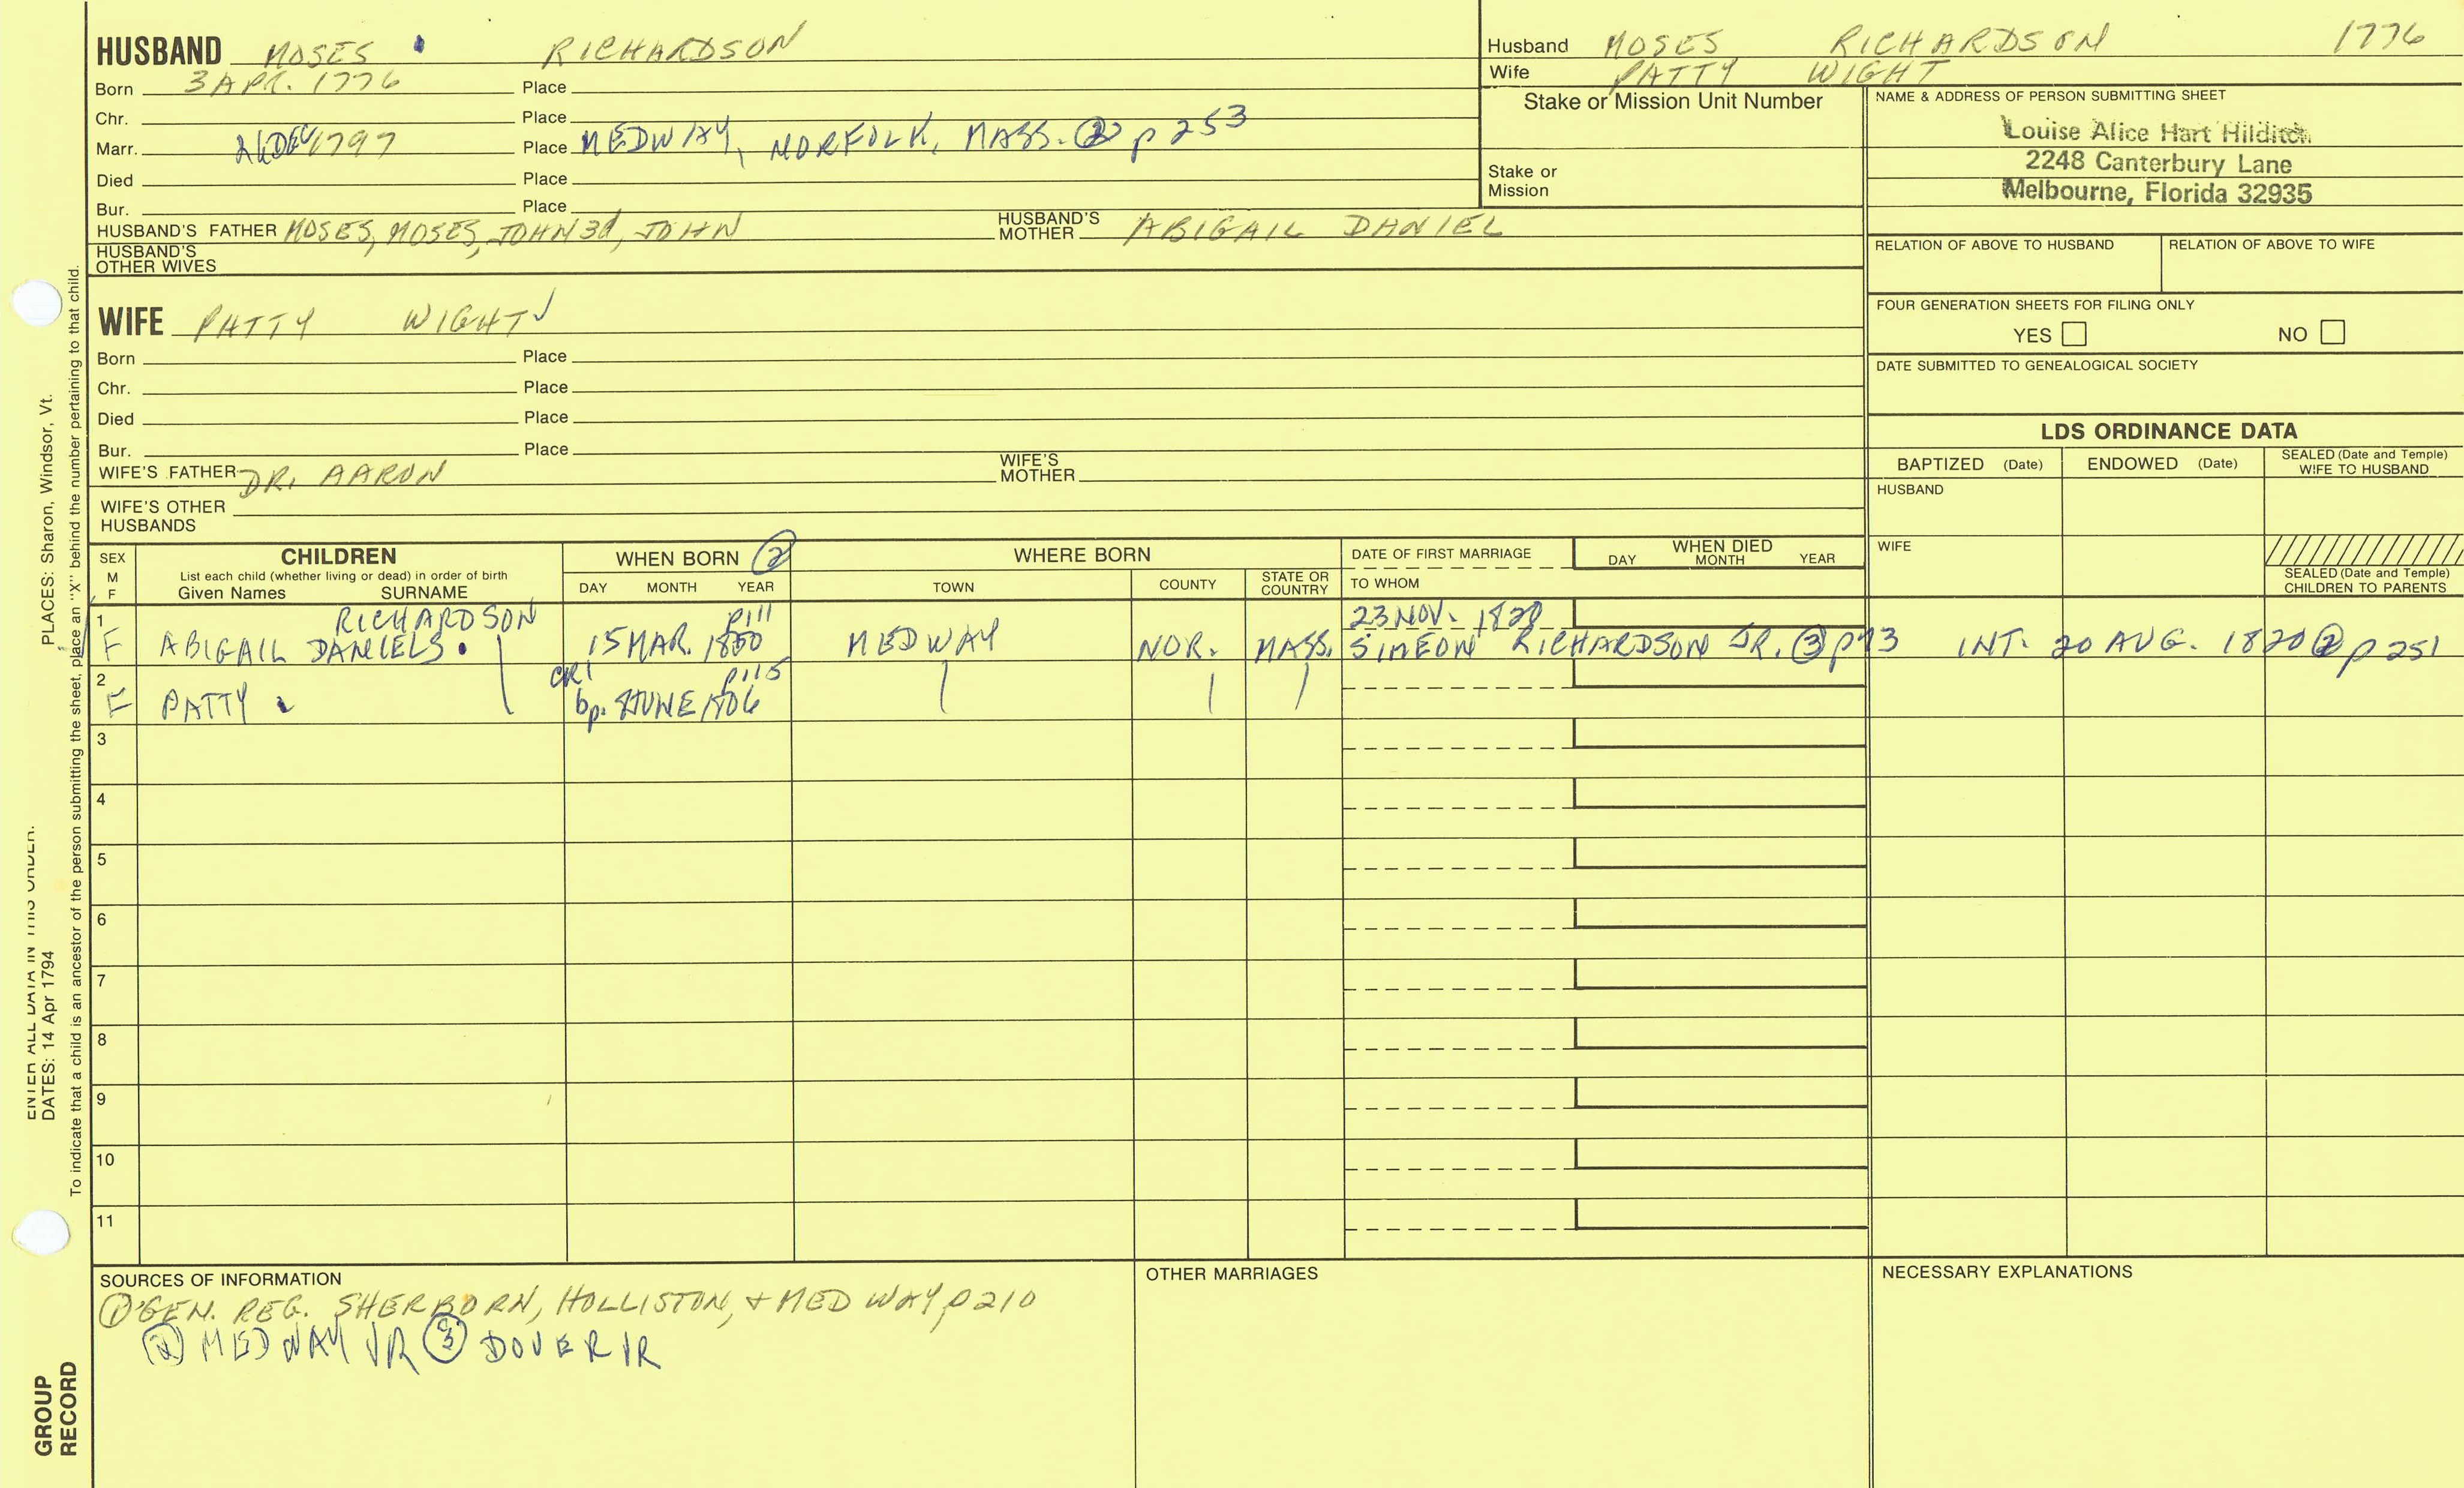 HUSBAND MOSES RICHARDSON
Born 3 APR. 1776 Place
Chr. Place
Marr. 1797 Place MEDWAY, NORFOLK, MASS. ② p 253
Died Place
Bur. Place
HUSBAND'S FATHER MOSES, MOSES, JOHN 3d, JOHN HUSBAND'S MOTHER ABIGAIL DANIEL
HUSBAND'S OTHER WIVES
Husband MOSES RICHARDSON 1776
Wife PATTY WIGHT
Stake or Mission Unit Number
Stake or Mission
NAME & ADDRESS OF PERSON SUBMITTING SHEET
Louise Alice Hart Hilditch
2248 Canterbury Lane
Melbourne, Florida 32935
RELATION OF ABOVE TO HUSBAND RELATION OF ABOVE TO WIFE
FOUR GENERATION SHEETS FOR FILING ONLY
YES NO
DATE SUBMITTED TO GENEALOGICAL SOCIETY
WIFE PATTY WIGHT
Born Place
Chr. Place
Died Place
Bur. Place
WIFE'S FATHER DR. AARON WIFE'S MOTHER
WIFE'S OTHER HUSBANDS
LDS ORDINANCE DATA
BAPTIZED (Date) ENDOWED (Date) SEALED (Date and Temple) WIFE TO HUSBAND
HUSBAND
WIFE
SEALED (Date and Temple) CHILDREN TO PARENTS
SEX M F
CHILDREN
List each child (whether living or dead) in order of birth
Given Names SURNAME
WHEN BORN ②
DAY MONTH YEAR
WHERE BORN
TOWN COUNTY STATE OR COUNTRY
DATE OF FIRST MARRIAGE
TO WHOM
WHEN DIED
DAY MONTH YEAR
1 RICHARDSON p111 23 NOV. 1820
F ABIGAIL DANIELS 15 MAR. 1800 MEDWAY NOR. MASS. SIMEON RICHARDSON JR. ③ p93 INT. 20 AUG. 1820 ② p 251
2 CR1 p115
F PATTY bp. JUNE 1806
3
4
5
6
7
8
9
10
11
SOURCES OF INFORMATION
① GEN. REG. SHERBORN, HOLLISTON, + MEDWAY p 210
② MEDWAY VR ③ DOVER VR
OTHER MARRIAGES
NECESSARY EXPLANATIONS
PLACES: Sharon, Windsor, Vt.
DATES: 14 Apr 1794
ENTER ALL DATA IN THIS ORDER:
To indicate that a child is an ancestor of the person submitting the sheet, place an "X" behind the number pertaining to that child.
GROUP RECORD